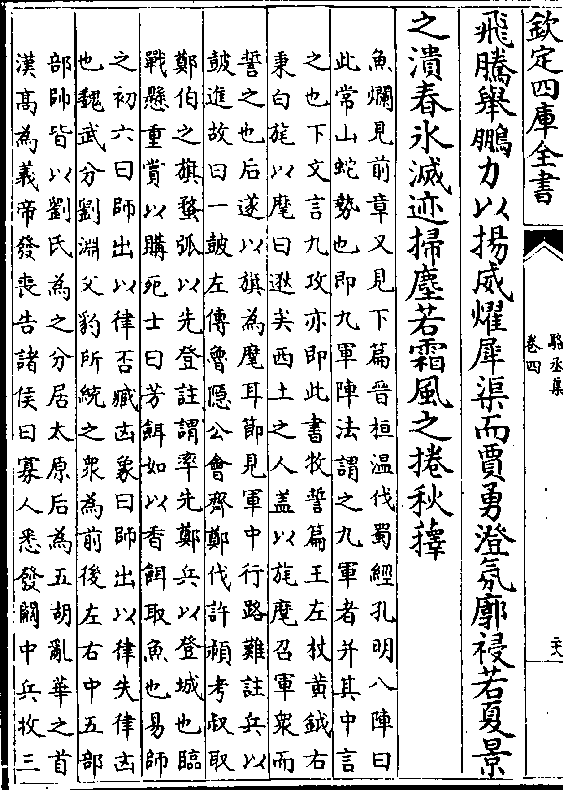 欽定四庫全書
駱丞集
卷四
飛騰舉鵬力以揚威耀犀渠而賈勇澄氛廓祲若夏景
之潰春氷滅迹掃塵若霜風之捲秋蘀
魚爛見前章又見下篇晉桓温伐蜀經孔明八陣曰
此常山蛇勢也即九軍陣法謂之九軍者并其中言
之也下文言九攻亦即此書牧誓篇王左杖黄鉞右
秉白旄以麾曰逖矣西土之人盖以旄麾召軍衆而
誓之也后遂以旗為麾耳節見軍中行路難註兵以
鼓進故曰一鼓左傳魯隱公會齊鄭伐許頴考叔取
鄭伯之旗蝥弧以先登註謂率先鄭兵以登城也臨
戰懸重賞以購死士曰芳餌如以香餌取魚也易師
之初六曰師出以律否臧凶象曰師出以律失律凶
也魏武分劉淵父豹所統之衆為前後左右中五部
部帥皆以劉氏為之分居太原后為五胡亂華之首
漢髙為義帝發喪告諸侯曰寡人悉發闗中兵收三